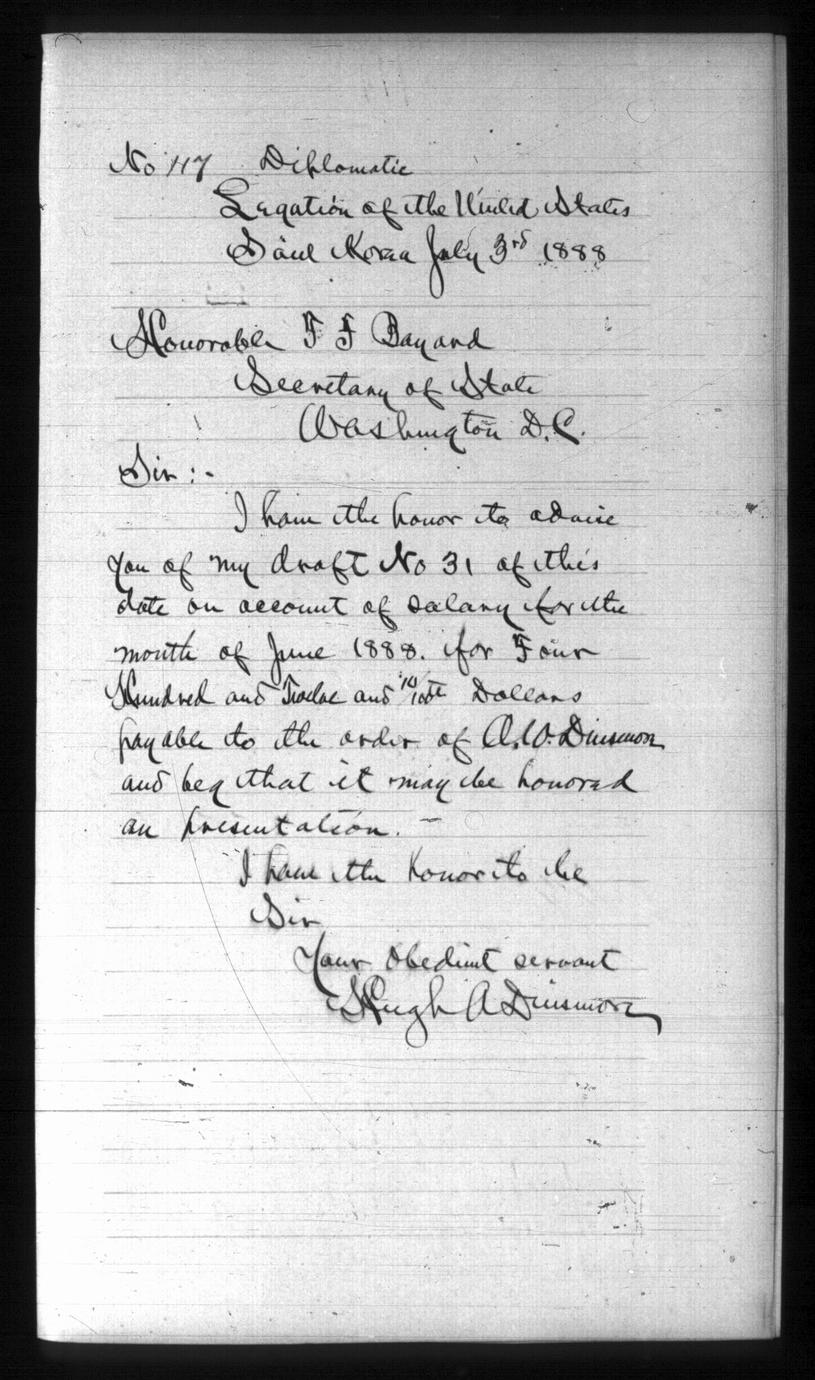 No 117 Diplomatic
Legation of the United States
Söul Korea July 3rd 1888
Honorable T F Bayard
Secretary of State
Washington D.C.
Sir :-
I have the honor to advise
you of my draft No 31 of this
date on account of salary for the
month of June 1888. for Four
Hundred and Twelve and 10/100th Dollars
payable to the order of A.W. Dinsmore
and beg that it may be honored
on presentation. -
I have the honor to be
Sir
Your obedient servant
Hugh A Dinsmore